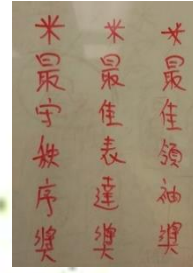 米最佳領袖獎
米最佳表達獎
米最守秩序獎